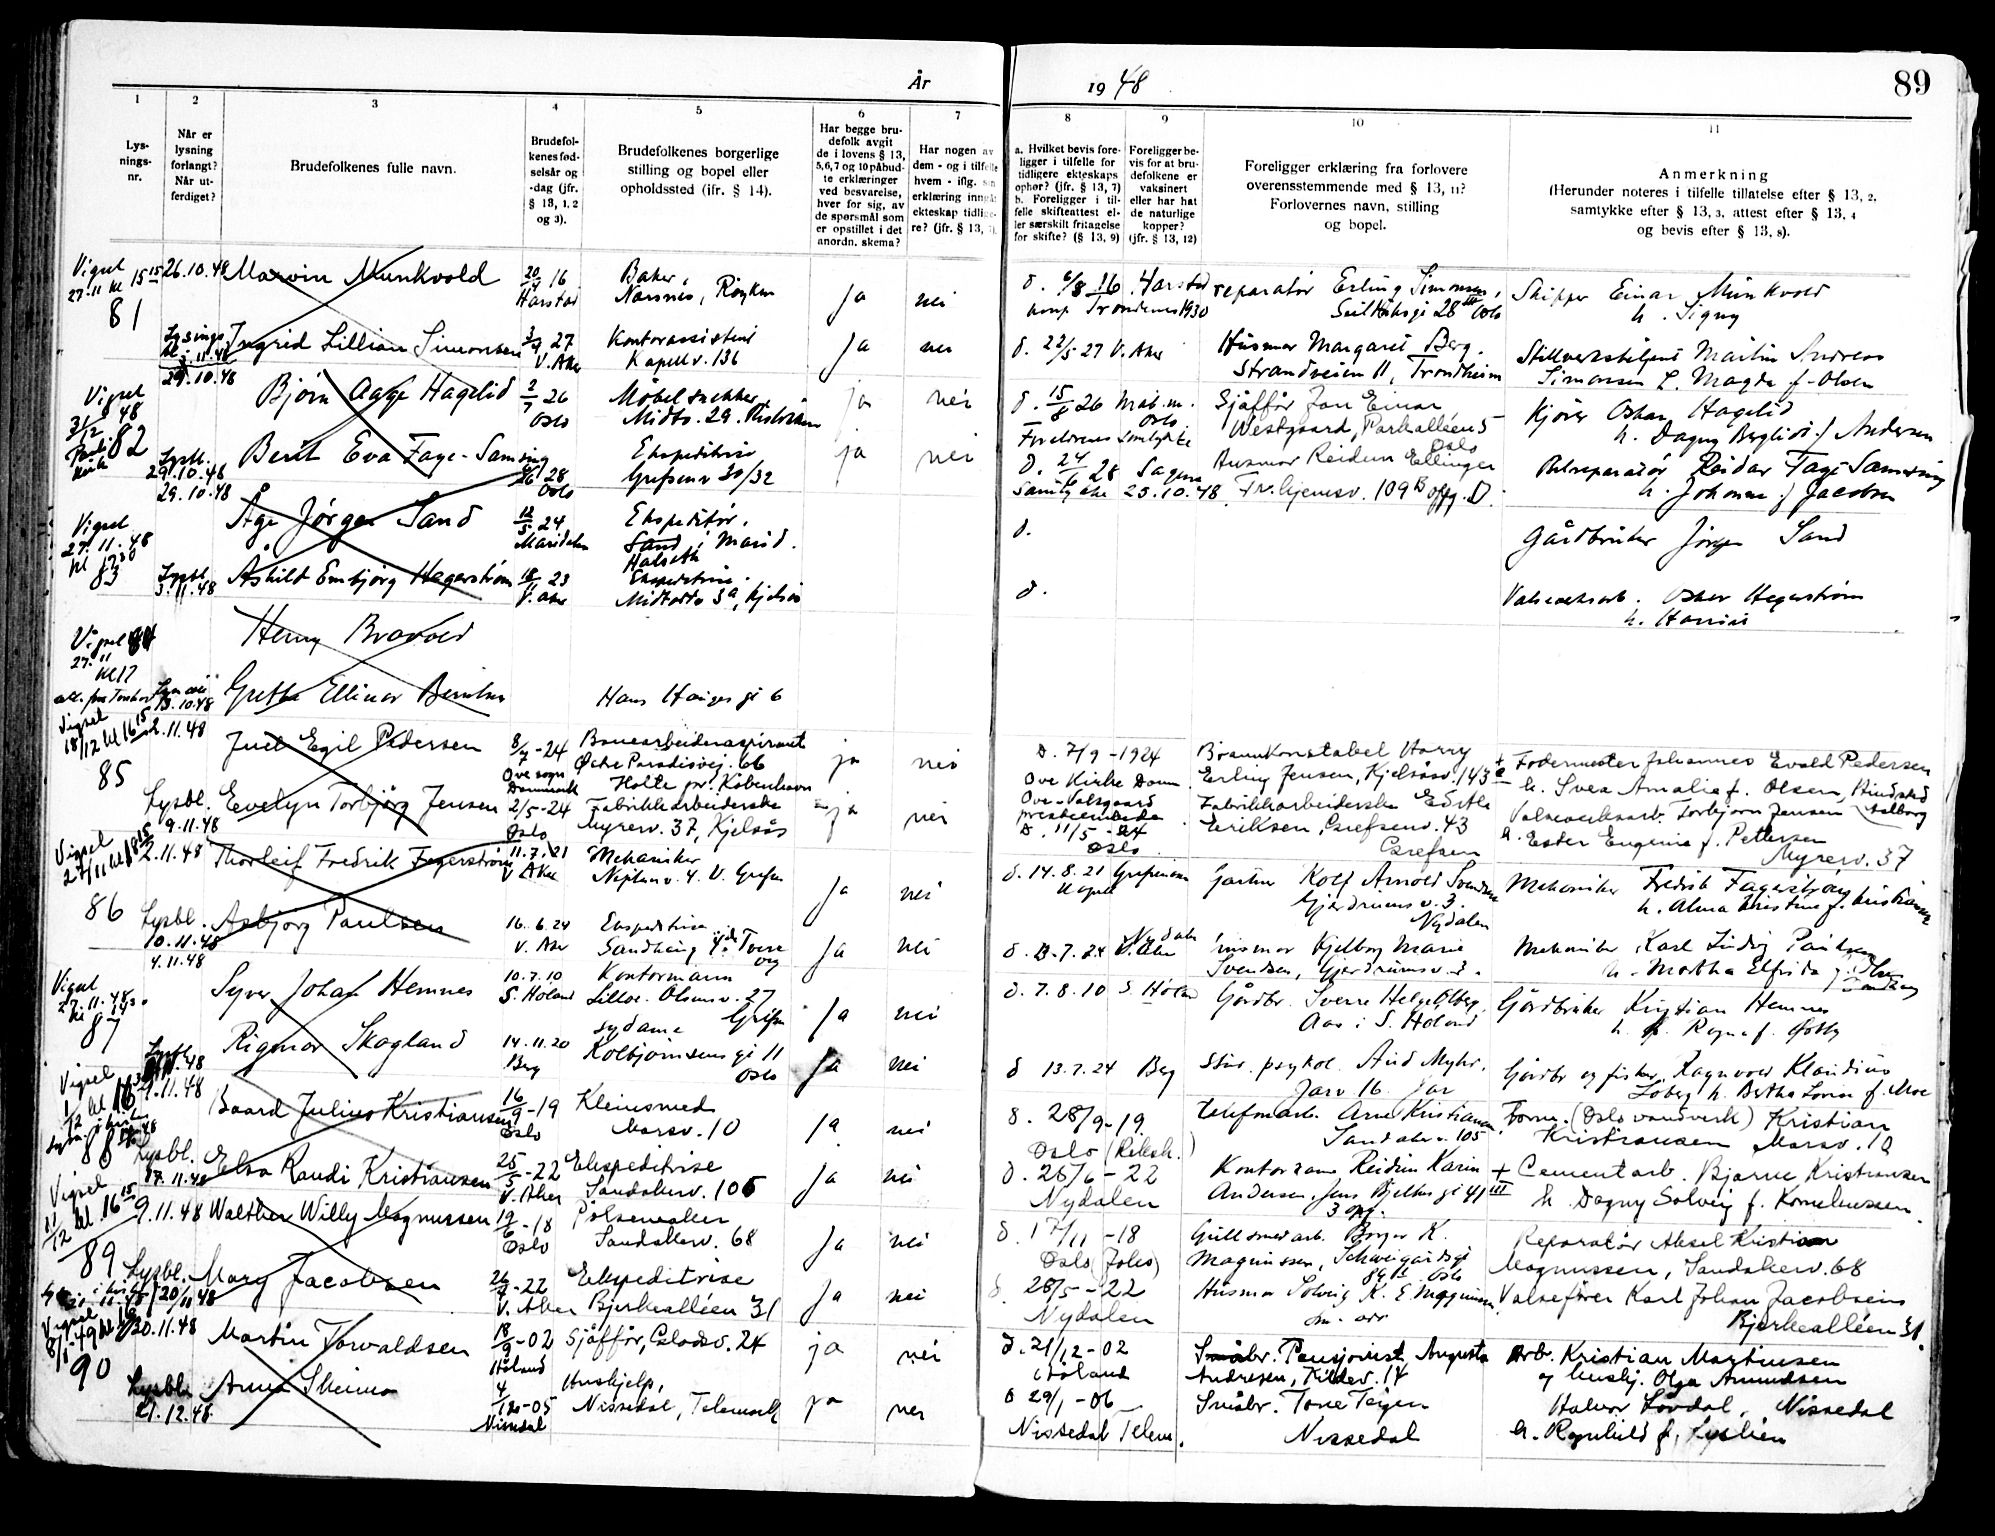 År
1948
89
1
2
3
4
5
6
7
8
9
10
11
Lys-
nings-
nr.
Når er
lysning
forlangt?
Når ut-
ferdiget?
Brudefolkenes fulle navn.
Brudefol-
kenes fød-
selsår og
-dag (jfr.
§ 13, 1, 2
og 3).
Brudefolkenes borgerlige
stilling og bopel eller
opholdssted (ifr. § 14).
Har begge bru-
defolk avgit
de i lovens § 13,
5,6,7 og 10 påbud-
te erklæringer
ved besvarelse,
hver for sig, av
de spørsmål som
er opstillet i det
anordn. skema?
Har nogen av
dem - og i tilfelle
hvem - iflg. sin
erklæring inngå
ekteskap tidlige-
re? (jfr. § 13,
a. Hvilket bevis fore-
ligger i tilfelle for
tidligere ekteskaps
ophør? (jfr. § 13, 7)
b. Foreligger i til-
felle skifteattest el-
ler særskilt fritagelse
for skifte? (§ 13, 9)
Foreligger be-
vis for at bru-
defolkene er
vaksinert
eller har hat
de naturlige
kopper?
(jfr. § 13, 12)
Foreligger erklæring fra forlovere
overensstemmende med § 13, 11?
Forlovernes navn, stilling
og bopel.
Anmerkning
(Herunder noteres i tilfelle tillatelse efter § 13, 2.
samtykke efter § 13, 3. attest efter § 13, 4
og bevis efter § 13, 8).
Vigsel 27-11 kl 15 15
81
26.10.48 Marvin Munkvold 20/4 16 Harstad
Baker, Narsnes, Røyken ja nei
d. 6/8 16 Harstad Trondenes 1930
reparatør Erling Simonsen, Oslo
Skipper Einar Munkvold
h. Signy
Lysings bl. 3.11.48
Ingrid Lillian Simonsen 3/4 27 V. Aker
Kontorassistent Kapellv. 136 ja nei
d. 22/5 27 V. Aker
Husmor Margaret Berg. Strandveien 11, Trondheim
Martin Andreas
Simonsen h. Magda f. Olsen
Vigsel 3/12 48
82
29.10.48 Bjørn Aage Hagelid 2/7 26 Oslo
Møbelsnekker, Midts. 29 ja nei
d. 15/8 26 Oslo
Foreldrenes samtykke
Sjåffør Jan Einar Westgaard, Parkalléen 5 Oslo
Kjører Oskar Hagelid
h. Dagny Bergliot f. Andersen
Lysbl. 29.10.48
Berit Eva Fage-Samsing 28 Oslo
Ekspeditrise Grefsenv 30/32 ja nei
d. 24/6 28 Sagene
Samtykke 25.10.48
Husmor Reidun Ellinger
Reidar Fage Samsing
h. Johanne f. Jacobsen
Vigsel 27.11.48 kl 17 30
83
29.10.48 Åge Jørgen Sand 12/5 24 Maridalen
Ekspeditør. Sand i Marid.
d.
Gårdbruker Jørgen Sand
Lysbl. 3.11.48
Åshild Embjørg Hegerstrøm 18/ 23 V. Aker
Ekspeditrise. Midtodds 3a, Kjelsås
d.
Valseverksarb. Oskar Hegerstrøm
Vigsel 84
27.11 kl 17
Henry Bravold
13.10.48
Grethe Ellinor Berntsen
Hans Hauges gt 6
Vigsel 18/12 kl 16 15
85
2.11.48 Juel Egil Pedersen 8/7-24 Ove sogn Danmark
Banearbeideraspirant Øvre Paradisvej. 66 Holte pr. København ja nei
D. 7/9-1924 Ove Kirke Danm. Ove-Valsgaard
Brannkonstabel Harry Erling Jensen, Kjelsåsv. 143
Fodermester Johannes Evald Pedersen
h. Svea Amalie f. Olsen, Hindsted Aalborg
Lysbl. 9.11.48
Evelyn Torbjørg Jensen 2/5-24 Oslo
Fabrikkarbeiderske Myrerv. 37, Kjelsås ja nei
D. 11/5-24 Oslo
Fabrikkarbeiderske Edith Eriksen, Grefsenv. 43 Grefsen
Valseverksarb. Torbjørn Jensen
h. Ester Eugenie f. Pettersen
Myrerv. 37
Vigsel 27/11 kl 18 15
86
2.11.48 Thorleif Fredrik Fagerstrøm 11.7.21 V Aker
Mekaniker Neptunv. 4. V. Grefsen ja nei
d. 14.8.21 Grefsen
Rolf Arnold Svendsen Gjerdrumsv. 3. Nydalen
Mekaniker Fredrik Fagerstrøm
h. Alma Kristine f. Kristiansen
Lysbl. 10.11.48
Asbjørg Paulsen 16.6.24 V. Aker
Ekspeditrise Sandhaug ja nei
d. 13.7.24 Nydalen V. Aker
Husmor Kjellborg Marie Svendsen, Gjerdrumsv. 3.
Mekaniker Karl Ludvig Paulsen
h. Martha Elfrida f. Olsen
Vigsel 27.11.48
87
4.11.48 Syver Johan Hemnes 10.7.10 S. Høland
Kontormann Lilloe-Olsensv. 27 Grefsen ja nei
d. 7.8.10 S. Høland
Gårdbr. Sverre Helge Ølberg, Aas i S. Høland
Gårdbruker Kristian Hemnes
h. Ragna f. Østby
Rigmor Skogland 14.11.20 Berg
sydame Kolbjørnsens gt 11 Oslo ja nei
d 13.7.24 Berg
Stud. psykol. Aud Myhr, Jarv 16. Jar
Gårdbr og fisker Ragnvald Klaudius
Løberg h. Bertha Lovise f. Moe
Vigsel 1/12 kl 16
88
9.11.48 Baard Julius Kristiansen 16/9-19 Oslo
Kleinsmed Marsv. 10 ja nei
d. 28/9-19 Oslo (Riksh.)
Telefonarb. Arne Kristiansen Sandakerv. 105
Form. (Oslo vandverk) Kristian
Kristiansen Marsv. 10
Lysbl. 17.11.48
Elsa Randi Kristiansen 25/5-22 V. Aker
Ekspeditrise Sandakerv. 105 ja nei
d. 26/6-22 Nydalen
Kontordame Reidun Karin Andersen, Jens Bjelkes gt 41 III
+ Cementarb. Bjarne Kristiansen
h. Dagny Solveig f. Korneliussen.
Vigsel 11/12 kl. 16 15
89
9.11.48 Walther Willy Magnussen 19/6-18 Oslo
Pølsemaker Sandakerv. 68 ja nei
d. 17/11-18 Oslo (Johs)
Gullsmedarb. Borger K. Magnussen, Schweigårdsgt Oslo
Reparatør Aksel Kristian
Magnussen, Sandakerv. 68
Lysbl. 20/11 48
Mary Jacobsen 26/4-22 V. Aker
Ekspeditrise Bjerkealléen 31 ja nei
d. 28/5-22 Nydalen
Husmor Solveig K. E. Magnussen
Valsefører Karl Johan Jacobsen
Bjerkealléen 31.
Vigsel 8/1-49
90
30.11.48 Martin Torvaldsen 18/9-02 Høland
Sjåffør, Gladsv. 24 ja nei
d. 21/12-02 i Høland
Pensjonist Augusta Andresen
Arb. Kristian Martinsen
og hushj. Olga Amundsen
Lysbl. 21.12.48
Anne Sheimo 4/12-05 Nissedal
Hushjelp, Nissedal, Telemark ja nei
d 29/1-06 Nissedal Telem.
Småbr. Tone Teigen Nissedal
Halvor Løvdal, Nissedal
h. Ragnhild f. Lyslien